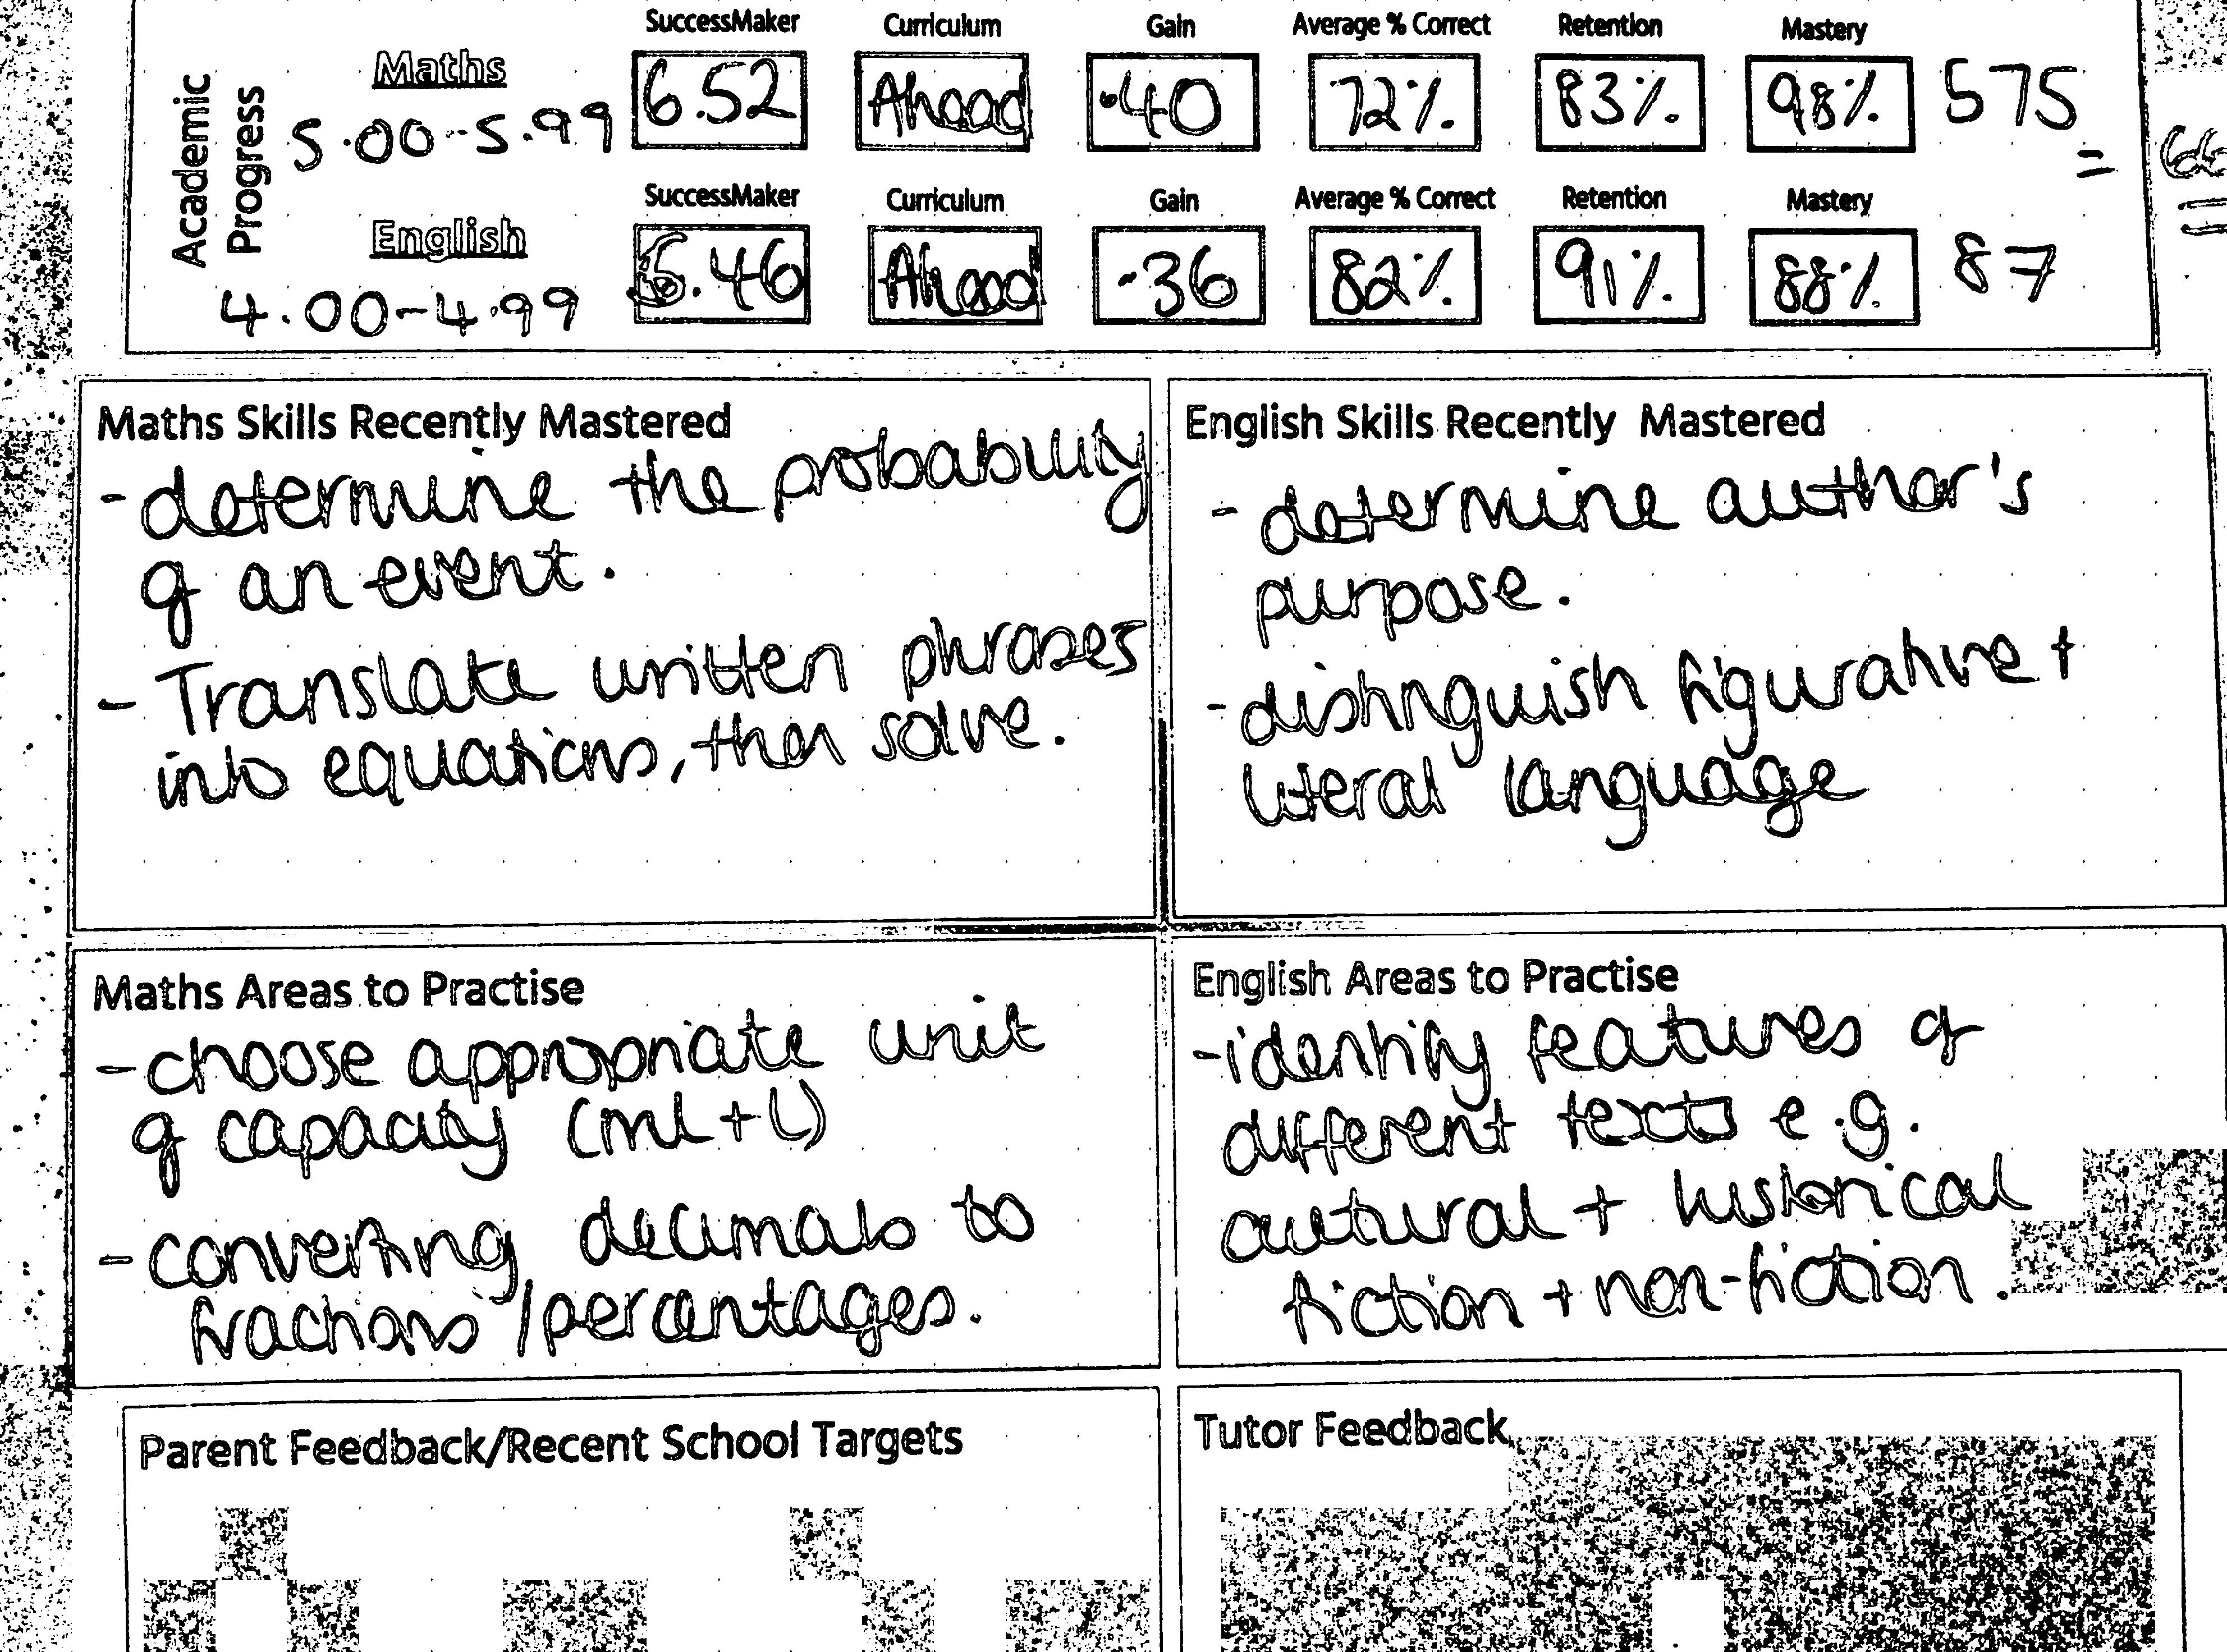 SuccessMaker Curriculum Gain Average % Correct Retention Mastery
Academic Progress
Maths 6.52 Ahead .40 72% 83% 98% 575
5.00-5.99
=
SuccessMaker Curriculum Gain Average % Correct Retention Mastery
English 5.46 Ahead .36 82% 91% 88% 87
4.00-4.99
Maths Skills Recently Mastered
- determine the probability
of an event.
- Translate written phrases
into equations, then solve.
English Skills Recently Mastered
- determine author's
purpose.
- distinguish figurative +
literal language
Maths Areas to Practise
- choose appropriate unit
of capacity (ml + l)
- converting decimals to
fractions/percentages.
English Areas to Practise
- identify features of
different texts e.g.
cultural + historical
fiction + non-fiction.
Parent Feedback/Recent School Targets
Tutor Feedback